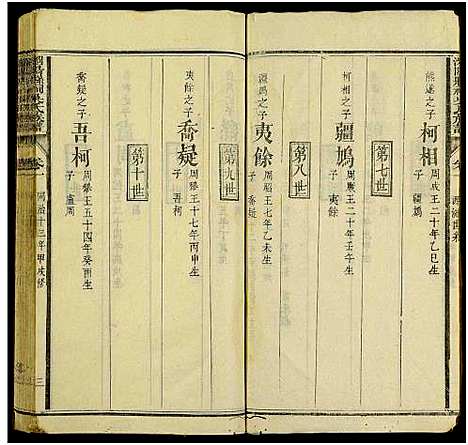 熊遂之子
柯相
周成王二十年乙巳生
子 疆鳩
第七世
柯相之子
疆鳩
周康王二十年壬午生
子 夷餘
第八世
疆鳩之子
夷餘
周昭王七年乙未生
子 喬疑
第九世
夷餘之子
喬疑
周穆王十七年丙申生
子 吾柯
第十世
喬疑之子
吾柯
周穆王五十四年癸酉生
子 盧周
卷一
同治十三年甲戌修
三